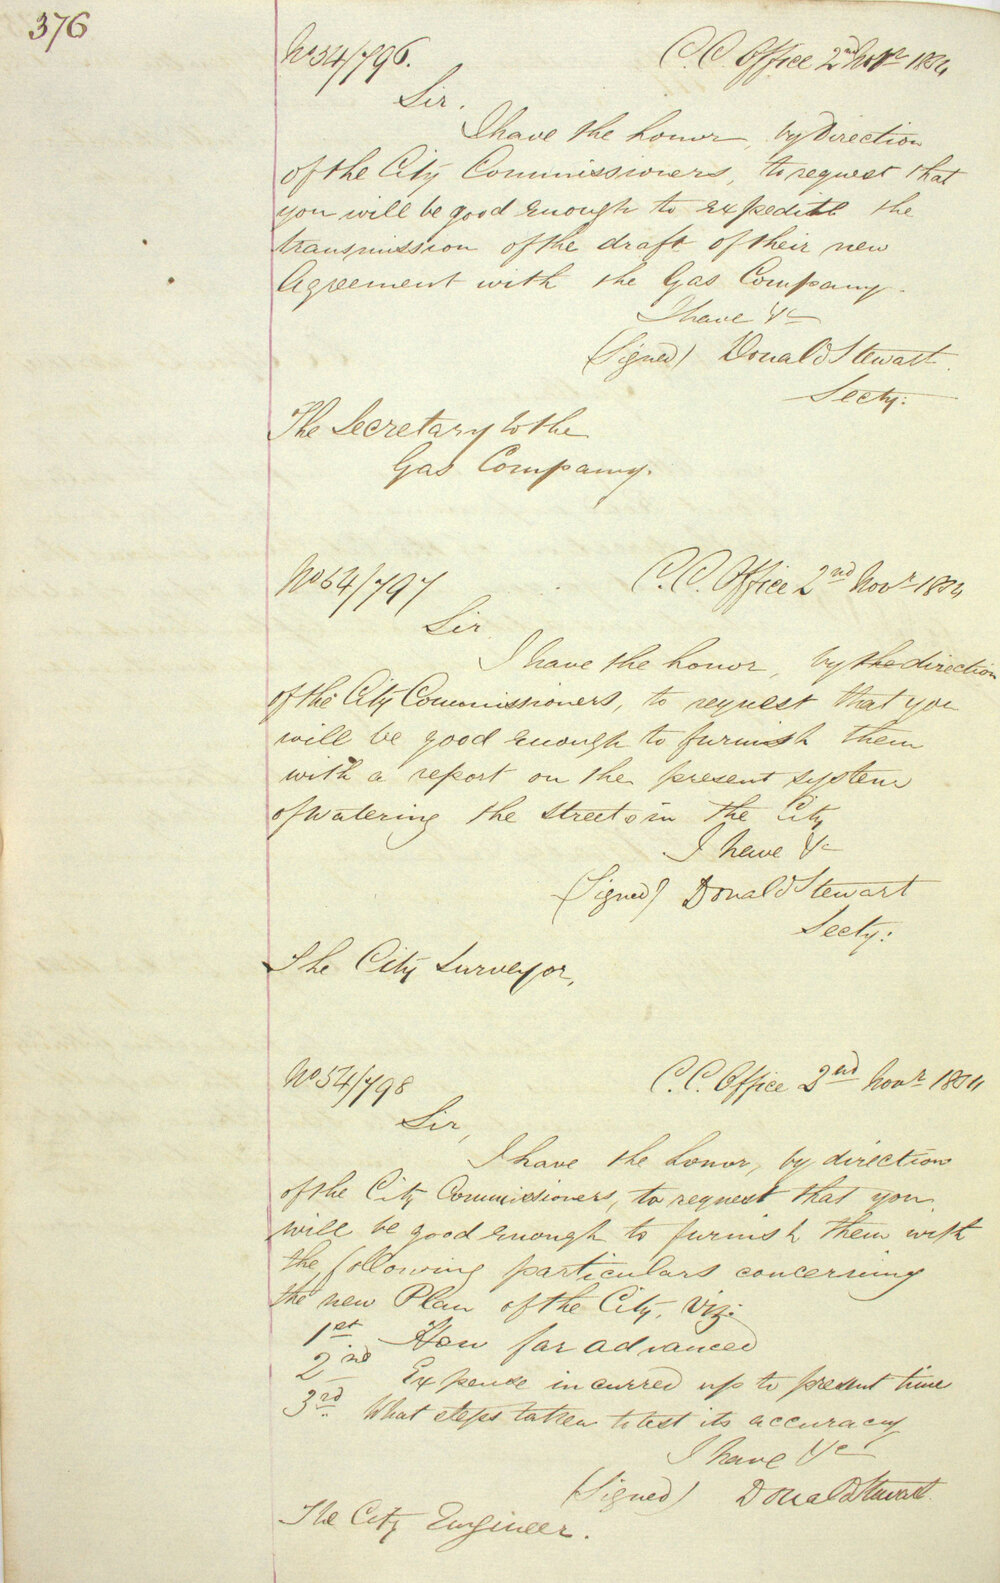 376
No 54/796. C.C. Office 2nd Novr 1854
Sir.
I have the honor, by Direction
of the City Commissioners, to request that
you will be good enough to expedite the
transmission of the draft of their new
Agreement with the Gas Company.
I have &c
(Signed) Donald Stewart.
Secty:
The Secretary to the
Gas Company.
No 54/797 C.C. Office 2nd Novr 1854
Sir
I have the honor, by the direction
of the City Commissioners, to request that you
will be good enough to furnish them
with a report on the present system
of watering the streets in the City
I have &c
(Signed) Donald Stewart
Secty:
The City Surveyor,
No 54/798 C.C. Office 2nd Novr 1854
Sir,
I have the honor, by direction
of the City Commissioners, to request that you
will be good enough to furnish them with
the following particulars concerning
the new Plan of the City, Viz:
1st How far advanced
2nd Expense incurred up to present time
3rd. What steps taken to test its accuracy
I have &c
(Signed) Donald Stewart.
The City Engineer.